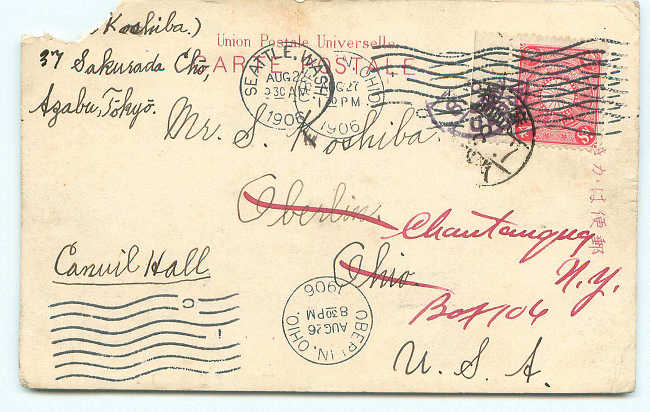 (Koshiba.)
37 Sakurada Cho,
Azabu, Tokyo.
Union Postale Universelle
CARTE POSTALE
SEATTLE, WASH.
AUG 2
9 30 AM
1906
OHIO
AUG 27
1906
Mr. S. Koshiba.
Oberlin,
Chautauqua
Ohio.
N.Y.
Box 106
U. S. A.
Canvil Hall
OBERLIN, OHIO
AUG 26
8 30 PM
1906
きかは便郵